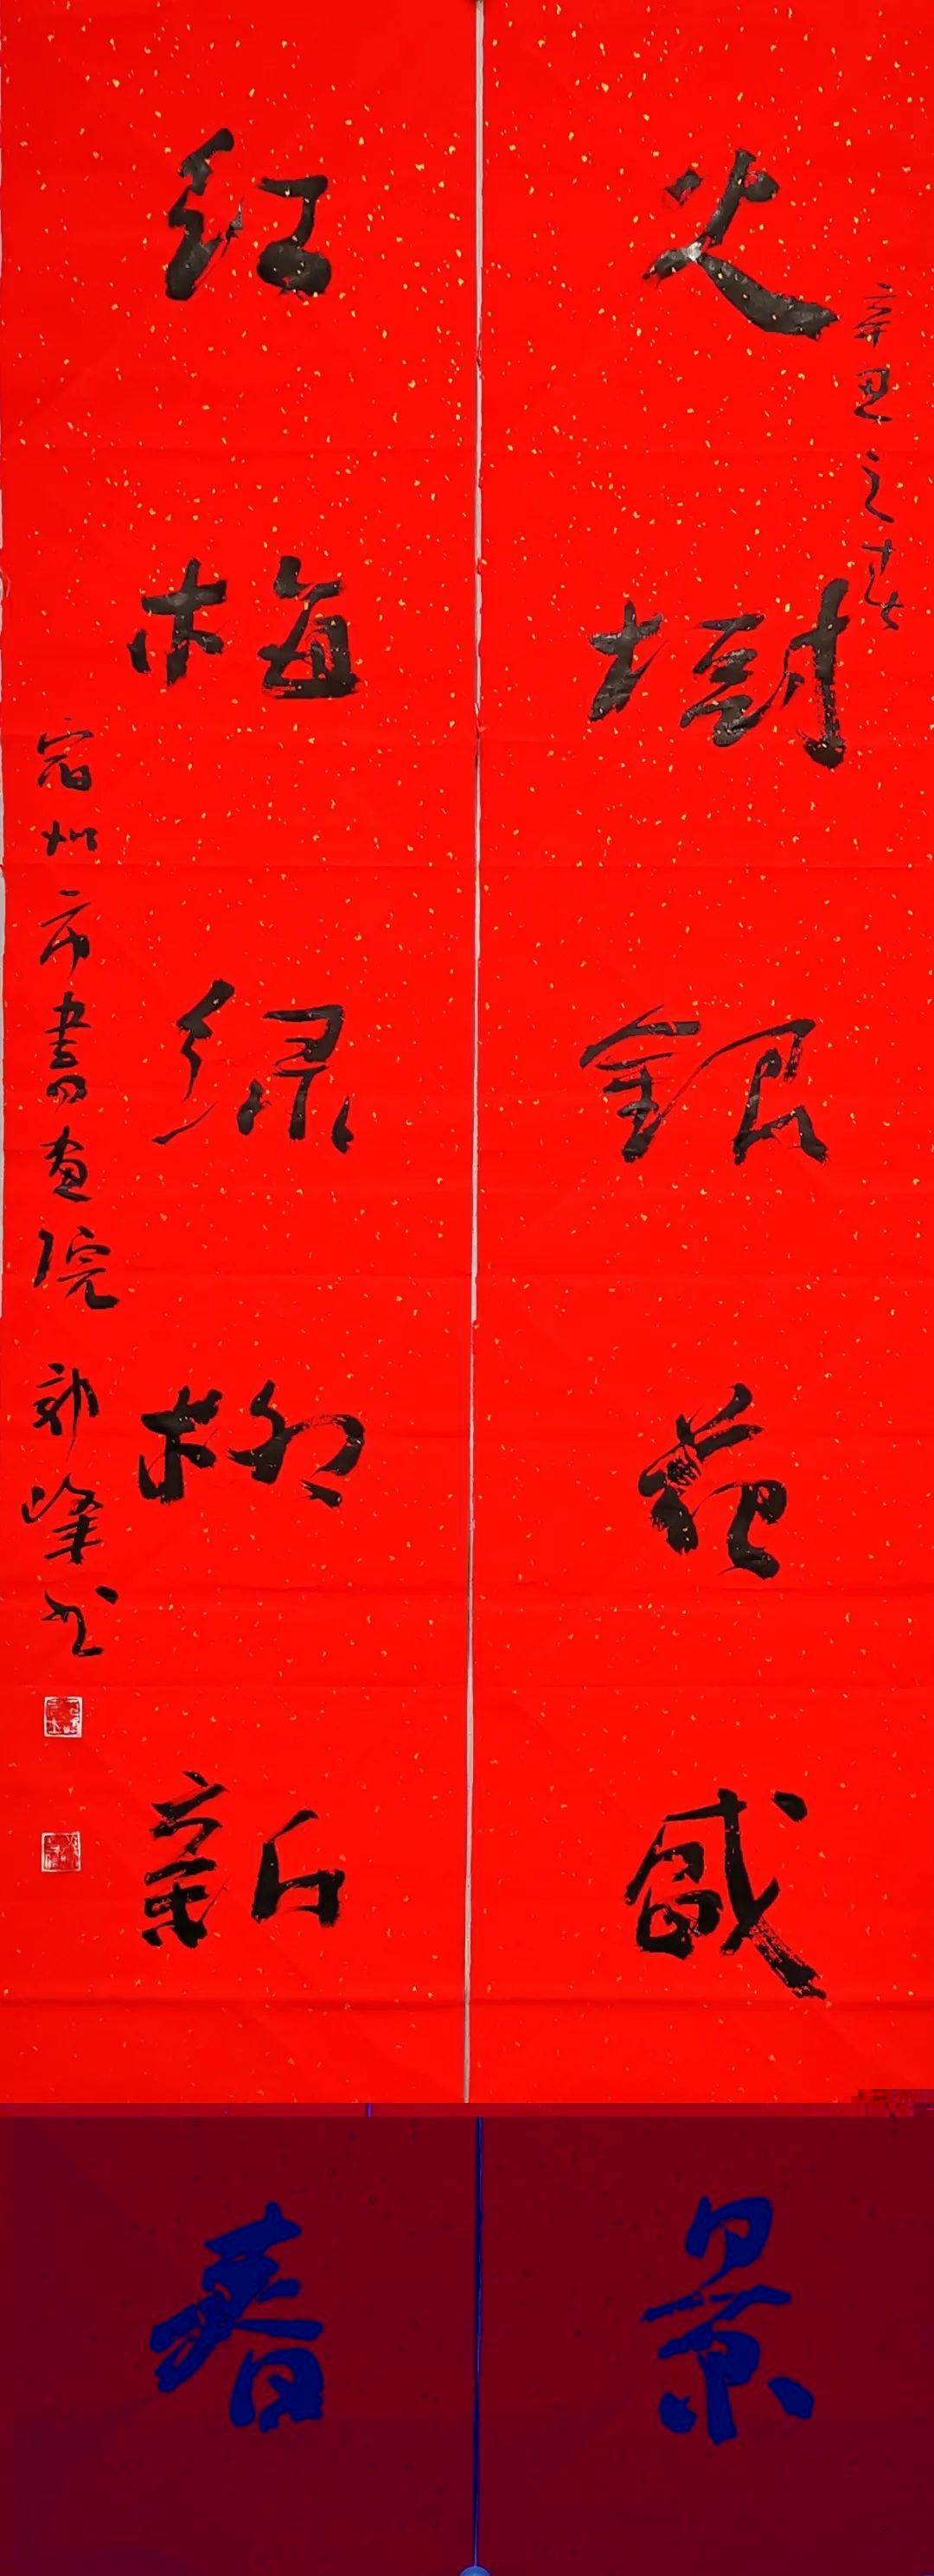 辛丑之春
火樹銀花盛景
紅梅綠柳新春
宿州市書畫院 郭峰书